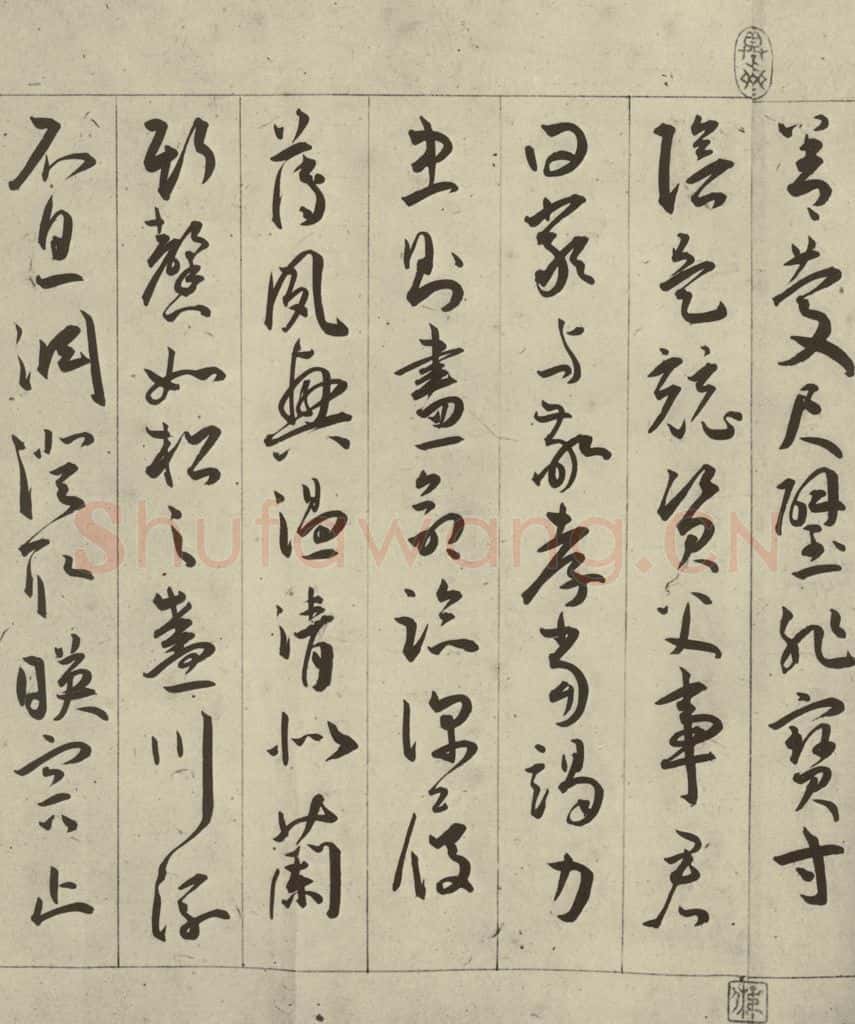 善慶尺璧非寶寸
陰是競資父事君
曰嚴与敬孝當竭力
忠則盡命臨深履
薄夙興溫清似蘭
斯馨如松之盛川流
不息淵澄取暎容止
Shufawang.CN